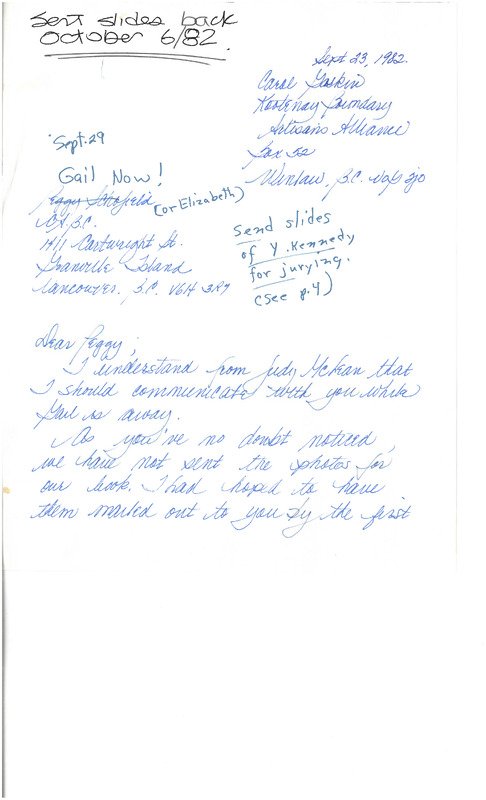 Sent slides back
October 6/82.
Sept 23, 1982.
Carol Gaskin
Kootenay Boundary
Artisans Alliance
Box 52
Winlaw, B.C. V0G 2J0
Sept. 29
Gail Now!
Peggy Schofield (or Elizabeth)
C.A.B.C.
1411 Cartwright St.
Granville Island
Vancouver, B.C. V6H 3R7
Send slides
of Y. Kennedy
for jurying.
(see p. 4)
Dear Peggy;
I understand from Judy McLean that
I should communicate with you while
Gail is away.
As you've no doubt noticed,
we have not sent the photos for
our book. I had hoped to have
them mailed out to you by the first